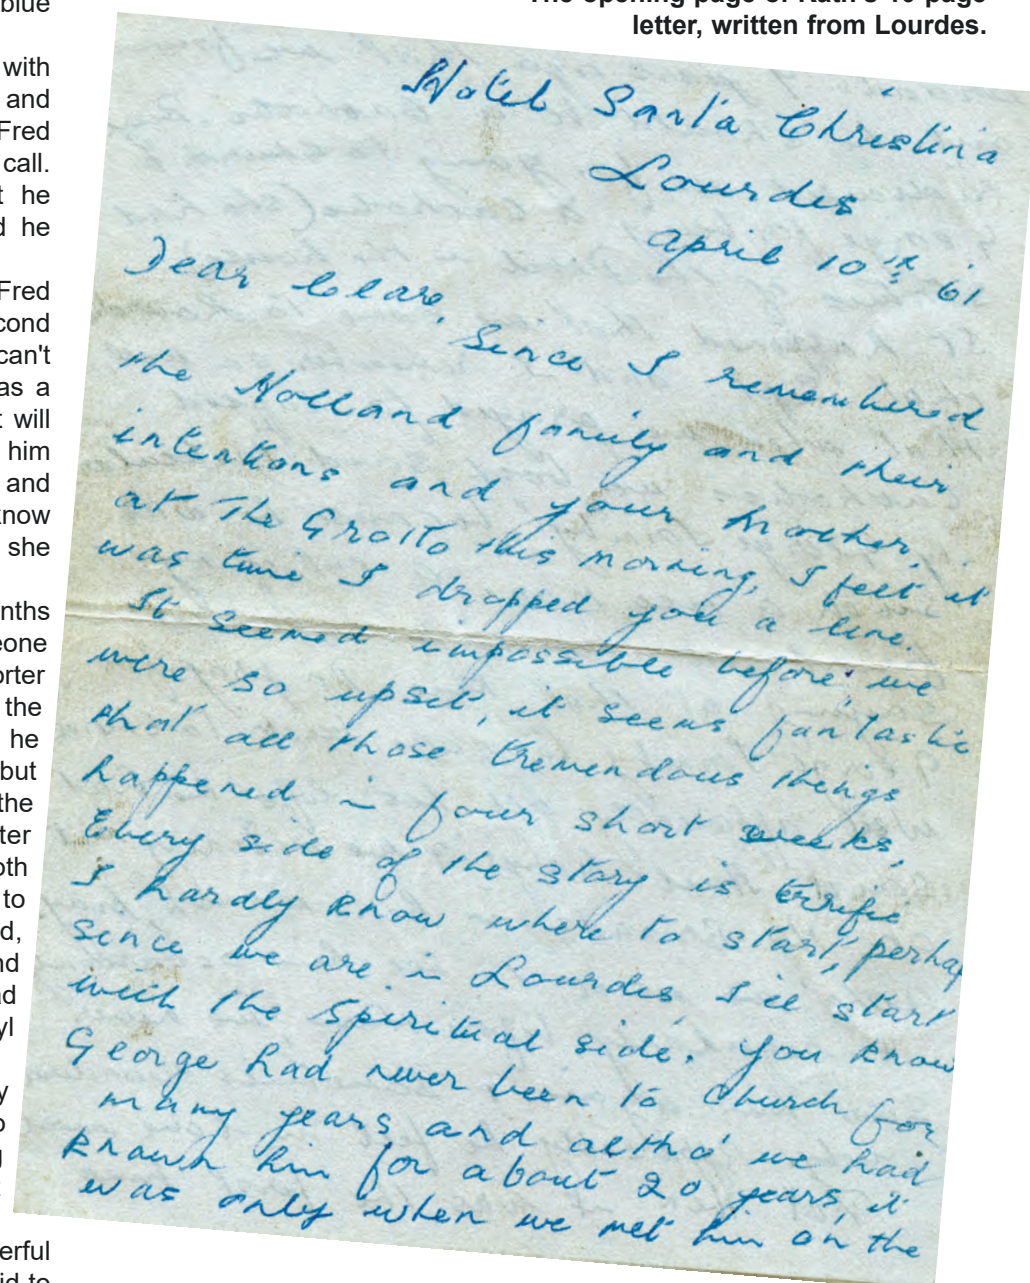 blue
with
and
Fred
call.
he
he
Fred
can't
as a
will
him
and
she
the
he
but
the
to
letter, written from Lourdes.
Hotel Santa Christina
Lourdes
April 10th 61
Dear Clare,
Since I remembered
the Holland family and their
intentions and your Mother,
at the Grotto this morning, I feel it
was time I dropped you a line.
It seemed impossible before we
were so upset, it seems fantastic
that all those tremendous things
happened in four short weeks,
Every side of the story is terrific
I hardly know where to start, perhap
since we are in Lourdes I'll start
with the spiritual side. You know
George had never been to Church for
many years and altho' we had
known him for about 20 years, it
was only when we met him on the